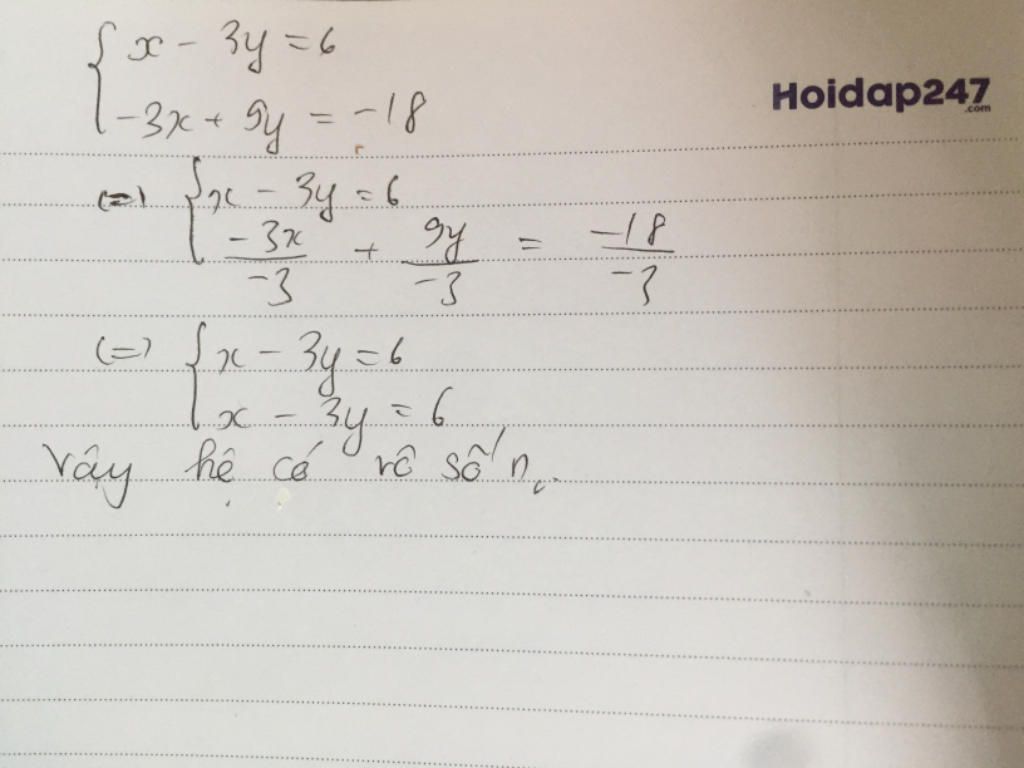 { x - 3y = 6
-3x + 9y = -18
Hoidap247
.com
(=) { x - 3y = 6
-3x/-3 + 9y/-3 = -18/-3
(=) { x - 3y = 6
x - 3y = 6
Vậy hệ có vô số n₀.